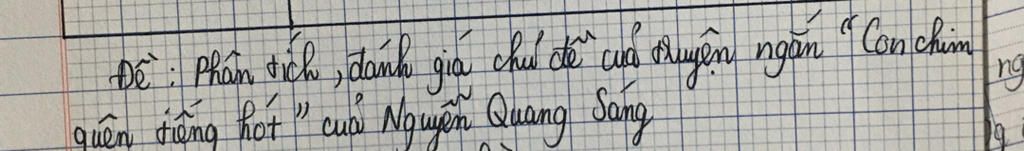 Đề: Phân tích, đánh giá chủ đề của truyện ngắn "Con chim
quên tiếng hót" của Nguyễn Quang Sáng
ng